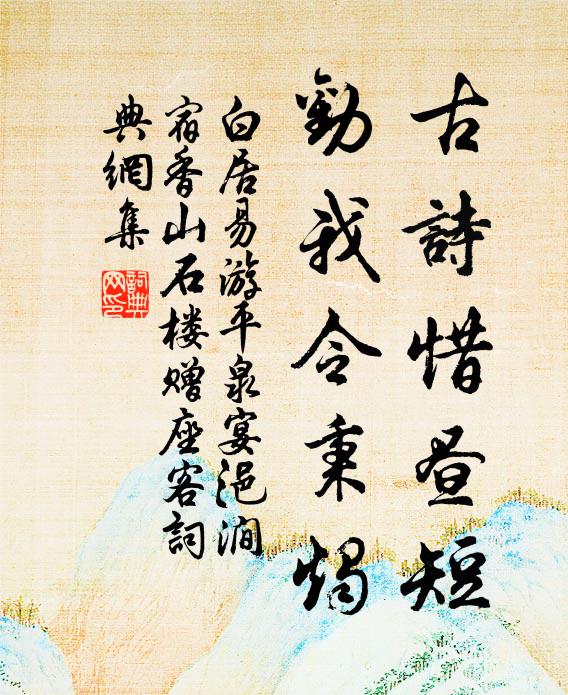 古詩惜昼短
勸我令秉燭
白居易游平泉宴浥澗
宿香山石楼赠座客詞
典網集
詞典網印